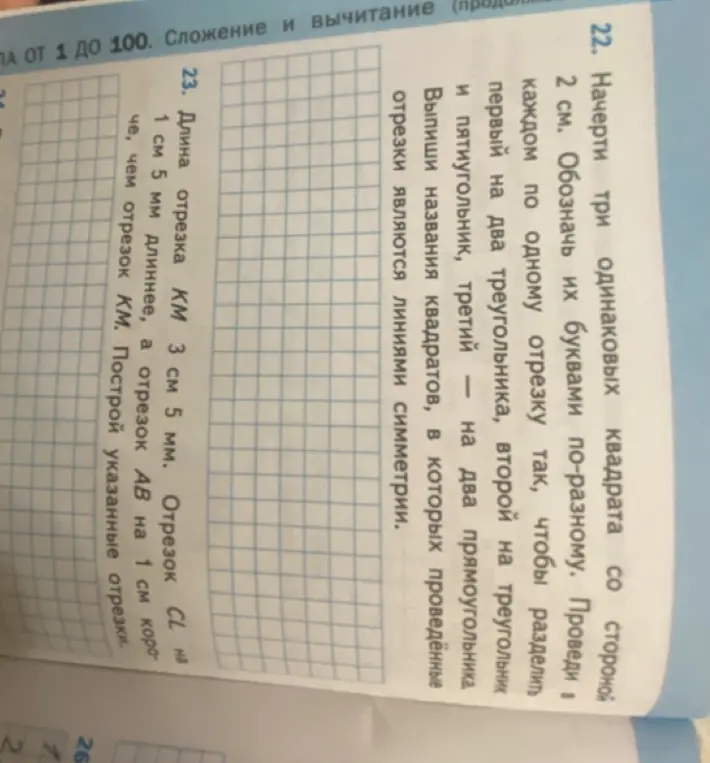 ЛА ОТ 1 ДО 100. Сложение и вычитание
22. Начерти три одинаковых квадрата со стороной
2 см. Обозначь их буквами по-разному. Проведи в
каждом по одному отрезку так, чтобы разделить
первый на два треугольника, второй на треугольник
и пятиугольник, третий — на два прямоугольника
Выпиши названия квадратов, в которых проведённые
отрезки являются линиями симметрии.
23. Длина отрезка КМ 3 см 5 мм. Отрезок CL на
1 см 5 мм длиннее, а отрезок АВ на 1 см коро-
че, чем отрезок КМ. Построй указанные отрезки.
26
1
2